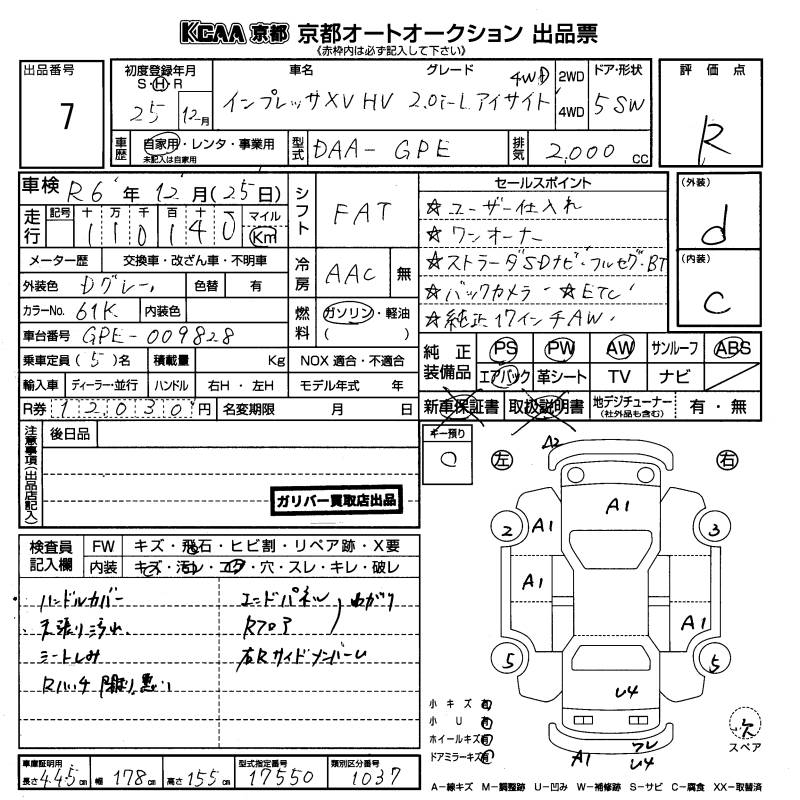 KCAA 京都 京都オートオークション 出品票
《赤枠内は必ず記入して下さい》
出品番号
7
初度登録年月
S・H・R
25 12月
車名 グレード
インプレッサXV HV 2.0i-L アイサイト
4WD
2WD
4WD
ドア・形状
5 SW
評価点
R
車歴
自家用・レンタ・事業用
未記入は自家用
型式
DAA-GPE
排気
2,000 cc
車検 R6年 12月(25日)
走行
記号 十 万 千 百 十
1 1 0 1 4 0
マイル
Km
シフト
FAT
セールスポイント
☆ユーザー仕入れ
☆ワンオーナー
☆ストラーダSDナビ・フルセグ・BT
☆バックカメラ ☆ETC
☆純正17インチAW
(外装)
d
(内装)
C
メーター歴 交換車・改ざん車・不明車
冷房
AAC 無
外装色 Dグレー 色替 有
カラーNo. 61K 内装色
燃料
ガソリン・軽油
( )
車台番号 GPE-009828
乗車定員 (5)名 積載量 Kg NOX 適合・不適合
輸入車 ディーラー・並行 ハンドル 右H・左H モデル年式 年
R券 12030円 名変期限 月 日
純正装備品
PS PW AW サンルーフ ABS
エアバック 革シート TV ナビ
新車保証書 取扱説明書 地デジチューナー (社外品も含む) 有・無
注意事項(出品店記入)
後日品
ガリバー買取店出品
キー預り
○
検査員記入欄
FW キズ・飛石・ヒビ割・リペア跡・X要
内装 キズ・汚れ・コゲ・穴・スレ・キレ・破レ
ハンドルカバー
天張り汚れ
シートしみ
Rハッチ 閉まり悪い
エンドパネル
Rフロア
右Rサイドメンバー
まがり
左 右
A2
A1
2 A1 3
A1
A1
5 5
U4
A1
U4
小キズ 有
小U 有
ホイールキズ 有
ドアミラーキズ 有
欠
スペア
車庫証明用
長さ 445cm 幅 178cm 高さ 155cm
型式指定番号
17550
類別区分番号
1037
A−線キズ M−調整跡 U−凹み W−補修跡 S−サビ C−腐食 XX−取替済